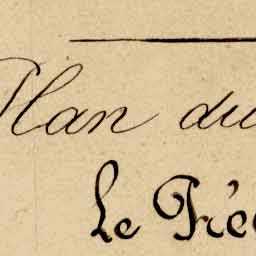 Plan du
Le Pré